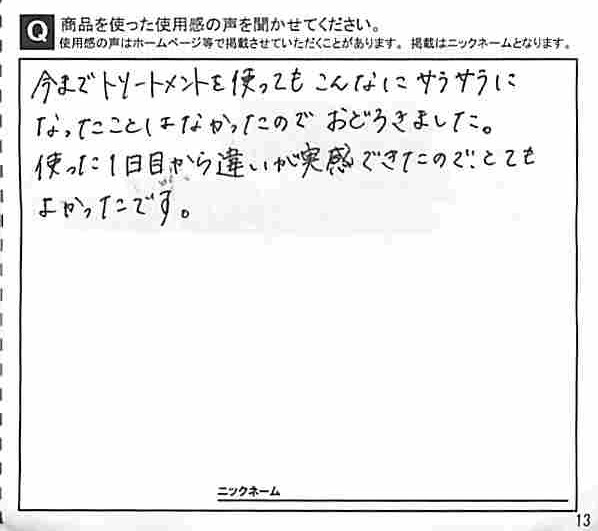 Q 商品を使った使用感の声を聞かせてください。
使用感の声はホームページ等で掲載させていただくことがあります。 掲載はニックネームとなります。
今までトリートメントを使ってもこんなにサラサラに
なったことはなかったので おどろきました。
使った1日目から違いが実感できたので、とても
よかったです。
ニックネーム
13